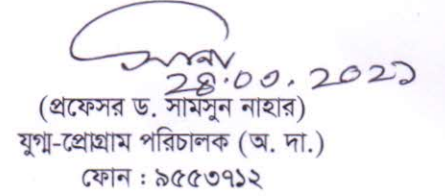 ২৪.০৩.২০২১
(প্রফেসর ড. সামসুন নাহার)
যুগ্ম-প্রোগ্রাম পরিচালক (অ. দা.)
ফোন : ৯৫৫৩৭১২